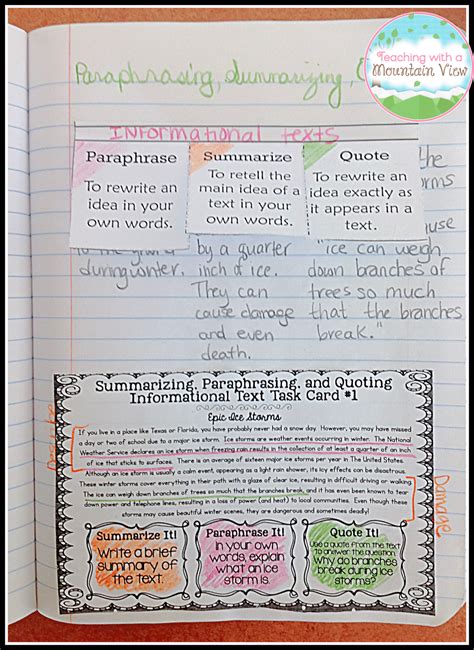 Teaching with a
Mountain View
Paraphrasing, Summarizing,
INformational texts
Paraphrase
To rewrite an
idea in your
own words.
Summarize
To retell the
main idea of a
text in your
own words.
Quote
To rewrite an
idea exactly as
it appears in a
text.
the
during winter.
by a quarter
inch of ice.
They can
cause damage
and even
death.
"ice can weigh
down branches of
trees so much
that the branches
break."
Summarizing, Paraphrasing, and Quoting
Informational Text Task Card #1
Epic Ice Storms
If you live in a place like Texas or Florida, you have probably never had a snow day. However, you may have missed
a day or two of school due to a major ice storm. Ice storms are weather events occurring in winter. The National
Weather Service declares an ice storm when freezing rain results in the collection of at least a quarter of an inch
of ice that sticks to surfaces. There is an average of sixteen major ice storms per year in The United States.
Although an ice storm is usually a calm event, appearing as a light rain shower, its icy effects can be disastrous.
These winter storms cover everything in their path with a glaze of clear ice, resulting in difficult driving or walking.
The ice can weigh down branches of trees so much that the branches break, and it has even been known to tear
down power and telephone lines, resulting in a loss of power (and heat) to local communities. Even though these
storms may cause beautiful winter scenes, they are dangerous and sometimes deadly!
Damage
Summarize It!
Write a brief
summary of
the text.
Paraphrase It!
In your own
words, explain
what an ice
storm is.
Quote It!
Use a quote from the text
to answer the question:
Why do branches
break during ice
storms?